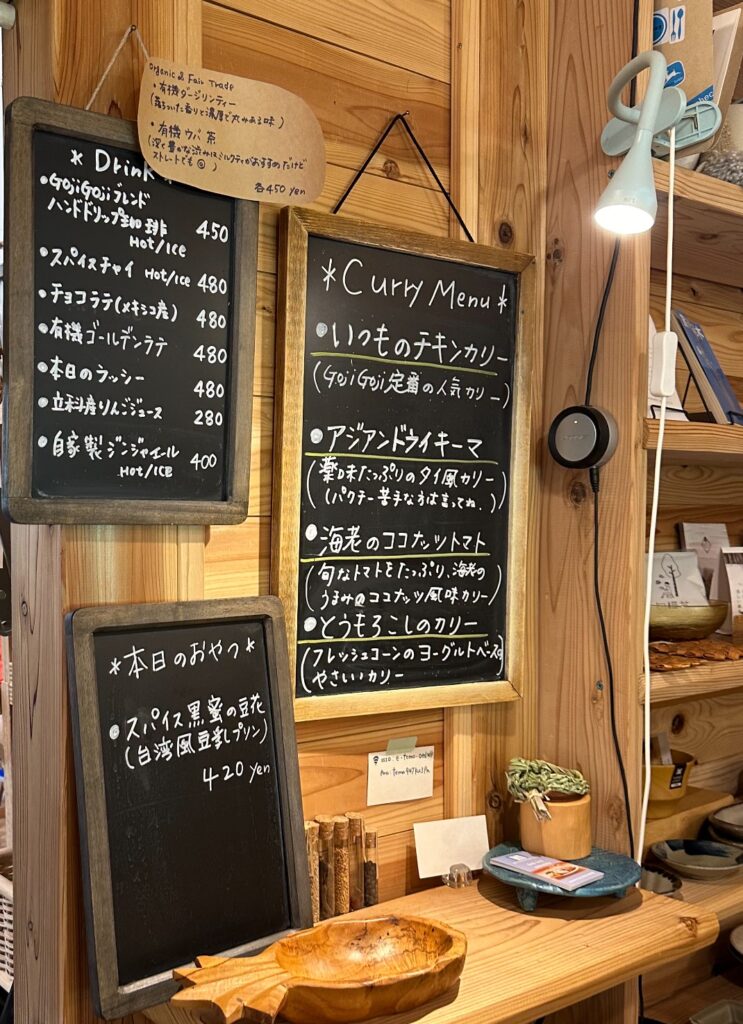 Organic & Fair Trade
・有機ダージリンティー
(落ちついた香りと濃厚で丸みある味)
・有機ウバ茶
(深く豊かな渋みはミルクティがおすすめだけど
ストレートでも☺)
各450 yen
*Drink
・GojiGojiブレンド
ハンドドリップ珈琲 450
Hot/Ice
・スパイスチャイ Hot/Ice 480
・チョコラテ(メキシコ産) 480
・有機ゴールデンラテ 480
・本日のラッシー 480
・立科産りんごジュース 280
・自家製ジンジャエール 400
HOT/ICE
*Curry Menu*
・いつものチキンカリー
(GojiGoji定番の人気カリー)
・アジアンドライキーマ
(薬味たっぷりのタイ風カリー
(パクチー苦手な方は言ってね.)
・海老のココナッツトマト
(旬なトマトをたっぷり、海老の
うまみのココナッツ風味カリー)
・とうもろこしのカリー
(フレッシュコーンのヨーグルトベースの
やさいカリー
*本日のおやつ*
・スパイス黒蜜の豆花
(台湾風豆乳プリン)
420 yen